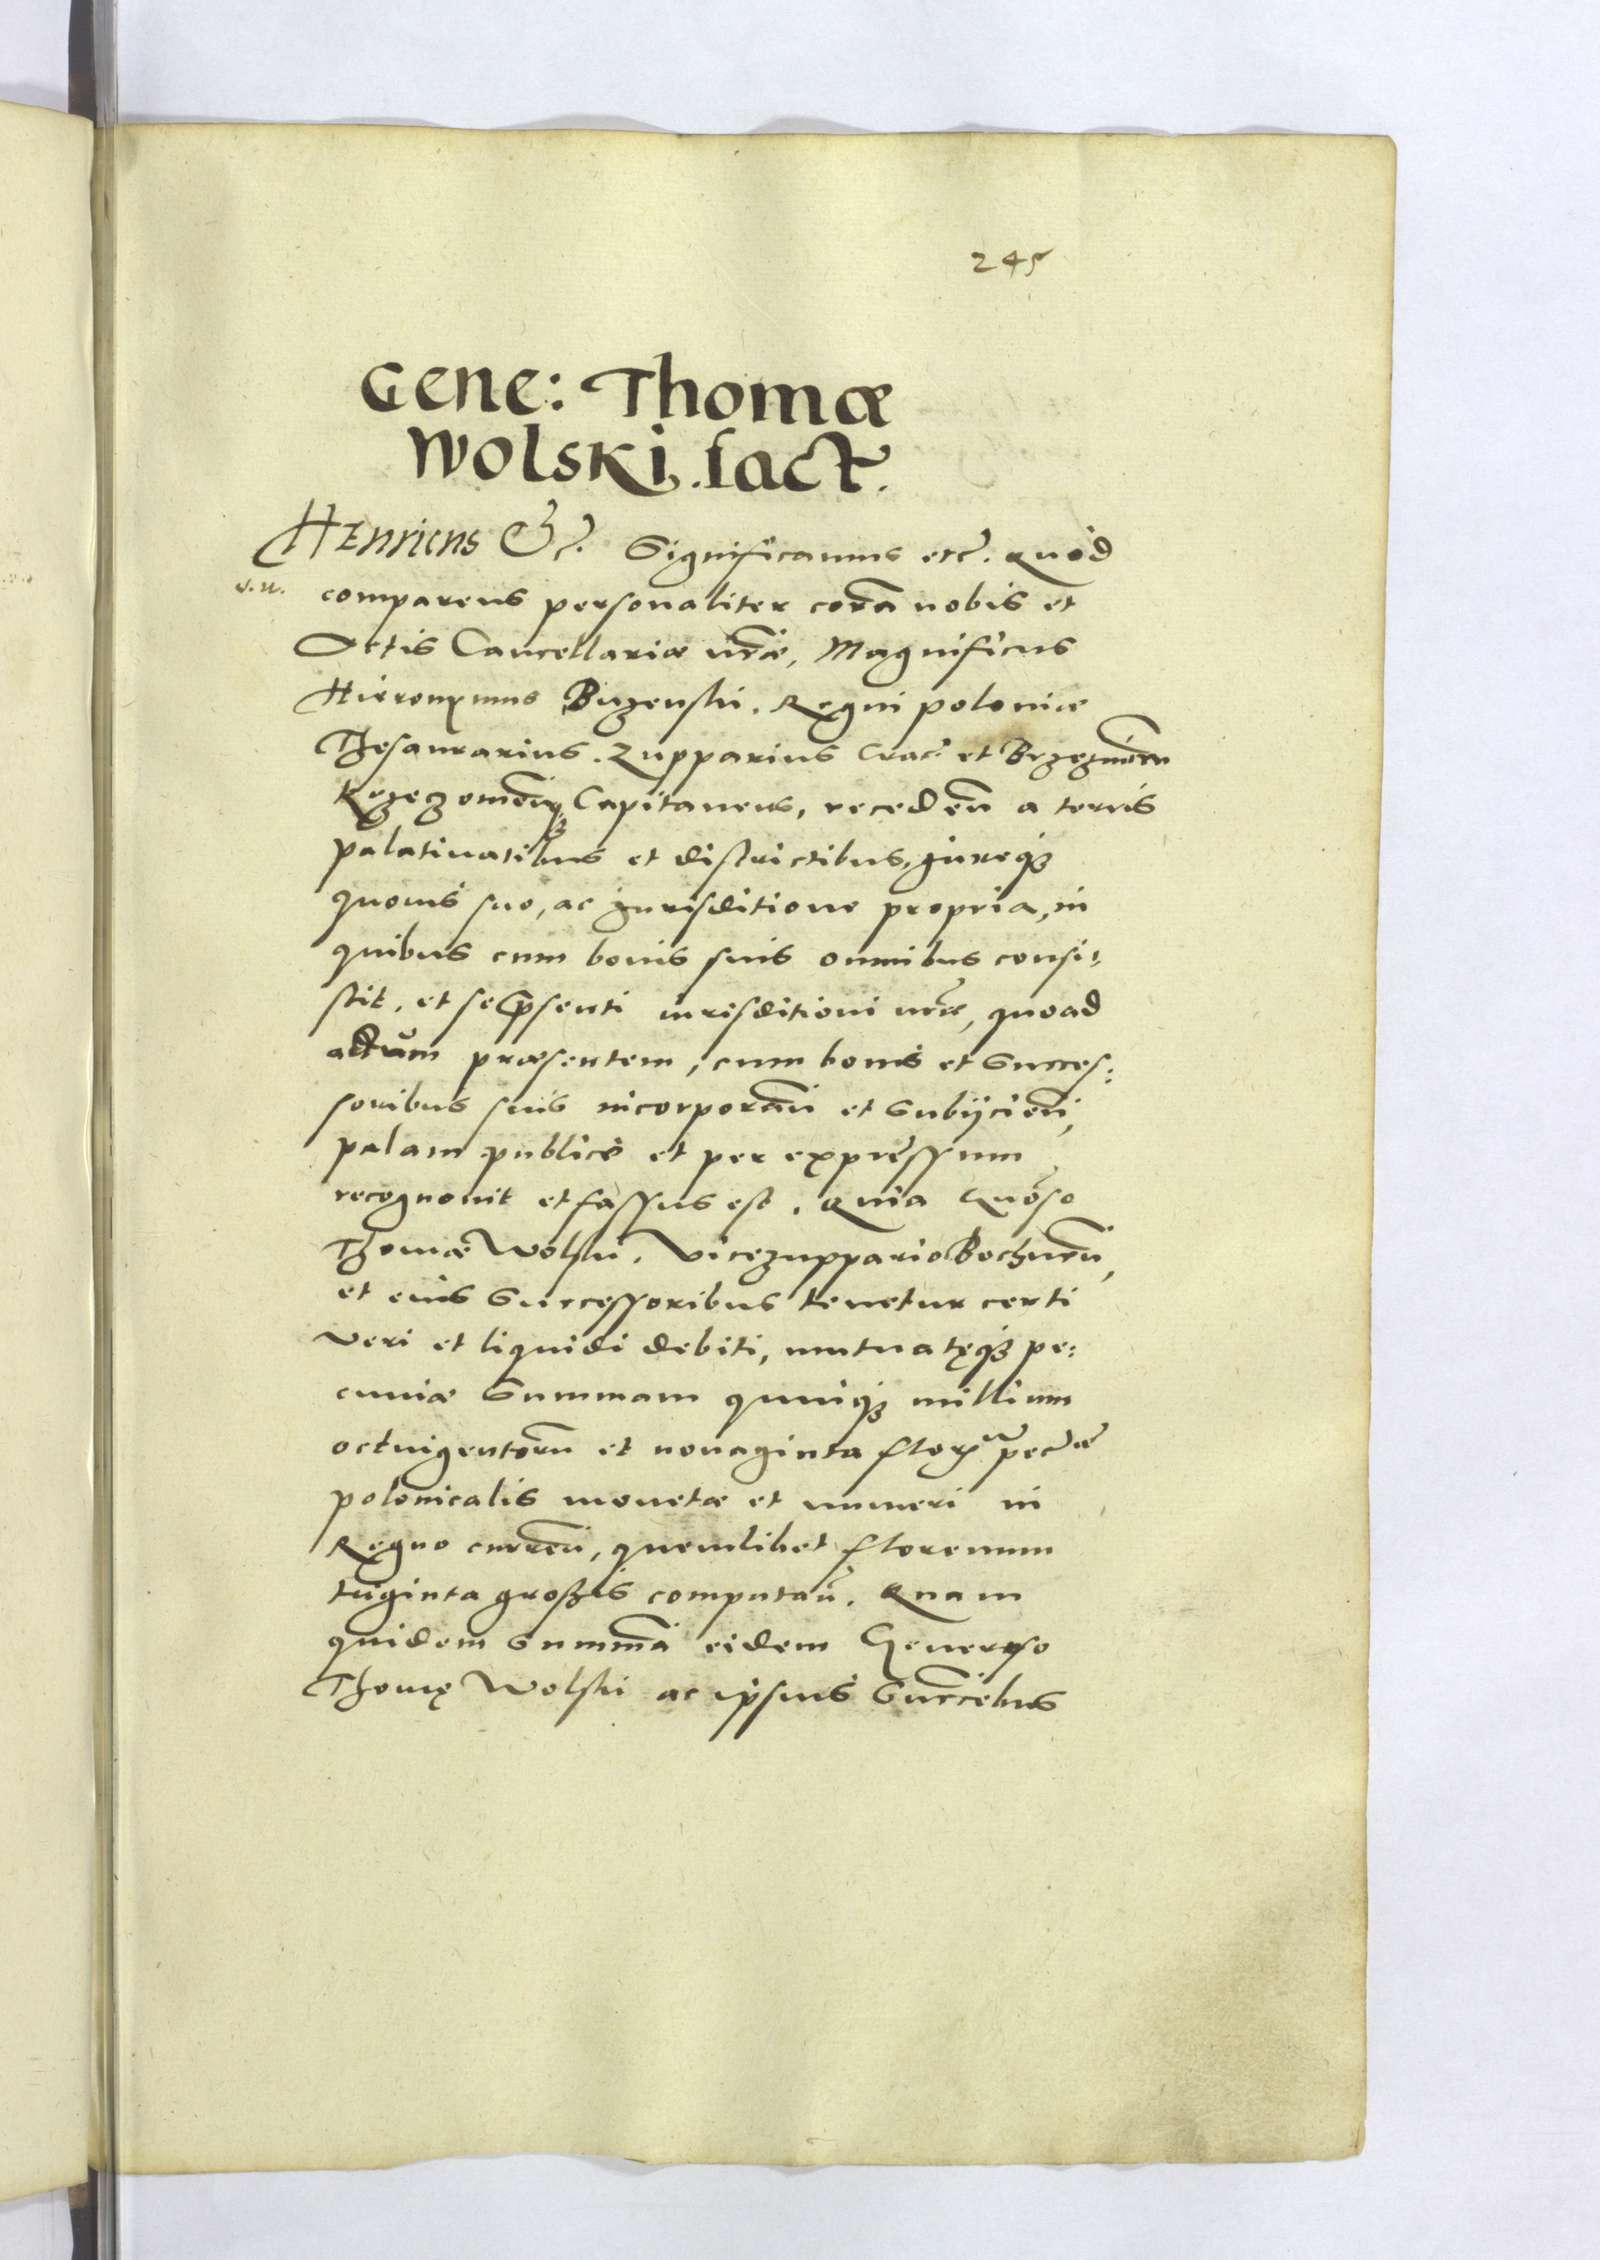 245
Gene: Thomæ
Wolski fact.
Henricus &c. Significamus etc. Quod
v. n. comparens personaliter corã nobis et
Actis Cancellariæ nr̃æ, Magnificus
Hieronymus Buzenski. Regni poloniæ
Thesaurarius. Zupparius Crac̃ et Brzeznicẽn
Krzeczowieñq3 Capitaneus, recedeñ a terris
palatinatibus et districtibus, jureq3
quouis suo, ac jurisditione propria, in
quibus cum bonis suis omnibus consi-
stit, et se p̃senti iurisditioni nr̃æ, quoad
actum præsentem, cum bonis et Succes:
soribus suis incorporañ et Subijcieñ,
palam publice et per expressum
recognouit et fassus est. Quia Gnõso
Thomæ Wolski. Vicezuppario Bochneñ,
et eius Successoribus tenetur certi
veri et liquidi debiti, mutuatęq3 pe:
cuniæ Summam quinq3 millium
octuigentorũ et nonaginta flor. pec̃æ
polonicalis monetæ et numeri in
Regno curreñ, quemlibet florenum
triginta grossis computañ. Quam
quidem Summã eidem Generoso
Thomę Wolski ac ipsius Succ̃ebus